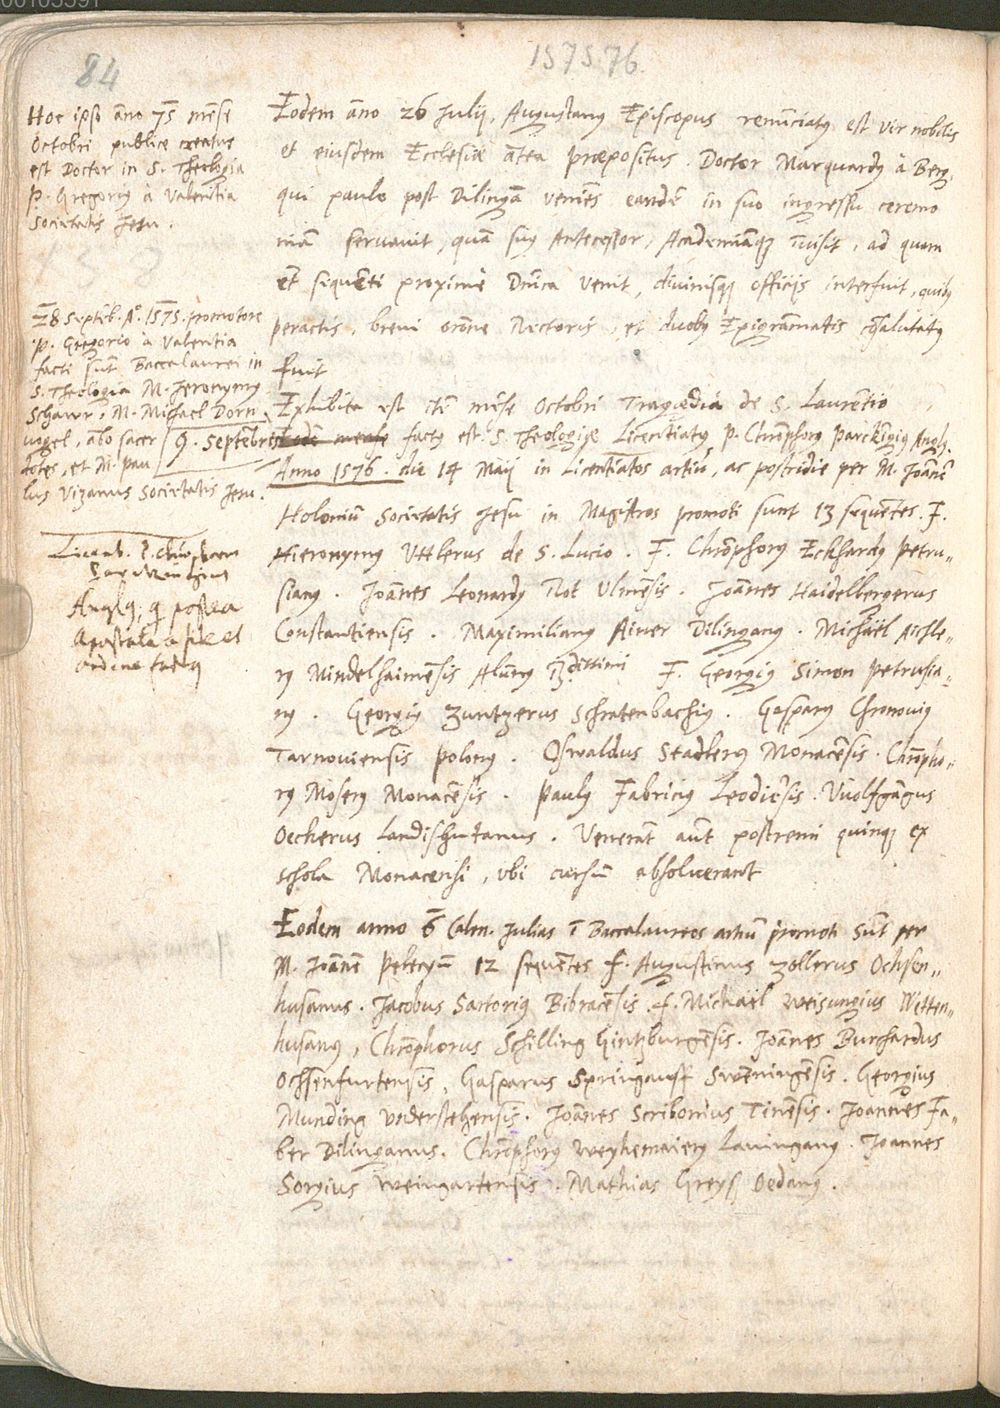 84
1575.76.
Hoc ipso āno 75 mēse
Octobri publice creatus
est Doctor in S. Theologia
P. Gregorių à Valentia
Societatis Jesu.
28 Septēb. Aº. 1575. promotore
P. Gregorio à Valentia
facti sūt Baccalaurei in
S. Theologia M. Jeronymų
Schawr, M. Michael Dorn
uogel, abo sacer
dotes, et M. Pau
lus Vizanus Societatis Jesu.
9. Septēbris
Licent. P. Chrōphorų
Anglų, q̨ postea
Apostata a fide et
ordine factų
Eodem āno 26 Julij, Augustanų Episcopus renūciatų est vir nobilis
et eiusdem Ecclesiæ ātea præpositus. Doctor Marquardų à Berg,
qui paulo post Dilingā veniēs eandē in suo ingressu ceremo
niam seruauit, quā suų Antecessor, Academiāq; īuisit, ad quam
et sequēti proximè Dnīca venit, diuinisq; officijs interfuit, quibų
peractis, breui orōne Rectoris, et duobų Epigrāmatis cōsalutatų
fuit
Exhibita est itē mēse Octobri Tragædia de S. Laurētio
Eodē mense factų est S. Theologiæ Licētiatų P. Chrōphorų Parckīgių Anglų.
Anno 1576. die 14 Maij in Licentiatos artiū, ac postridie per M. Joānē
Holoniū Societatis Jesu in Magistros promoti sunt 13 sequētes. F.
Hieronymų Vttlerus de S. Lucio. F. Chrōphorų Eckhardų Petru-
sianų. Joānes Leonardų Rot Vlmēsis. Joānes Haidelbergerus
Constantiensis. Maximilianų Ainer Dilinganų. Michaël Aichle-
rų Mindelhaimēsis Alūnų R.dissimi F. Georgių Simon Petrusia-
nų. Georgių Zuntzerus Schratenbachių. Gasparų Chronouių
Tarnouiensis Polonų. Oswaldus Stadlerų Monacēsis. Chrōpho-
rų Moserų Monacēsis. Paulų Fabricių Leodiēsis. Vuolfgāgus
Oeckerus Landishutanus. Venerāt aūt postremi quinq; ex
schola Monacensi, vbi cursū absoluerant
Eodem anno 6 Calen. Julias ī Baccalaureos artiū promoti sūt per
M. Joānē Pelecyū 12 sequētes F. Augustinus Zollerus Ochsen-
husanus. Jacobus Sartorių Bibracēsis. F. Michaël Weisungius Wetten-
husanų, Chrōphorus Schilling Gintzburgēsis. Joānes Burchardus
Ochsenfurtensis, Gasparus Springauff Swēningēsis. Georgius
Munding Vnderstehensis. Joānes Scribonius Tinēsis. Joannes Fa-
ber Dilinganus. Chrōphorų Weyhemaierų Lauinganų. Joannes
Sorgius Weingartensis. Mathias Greys Oedanų.